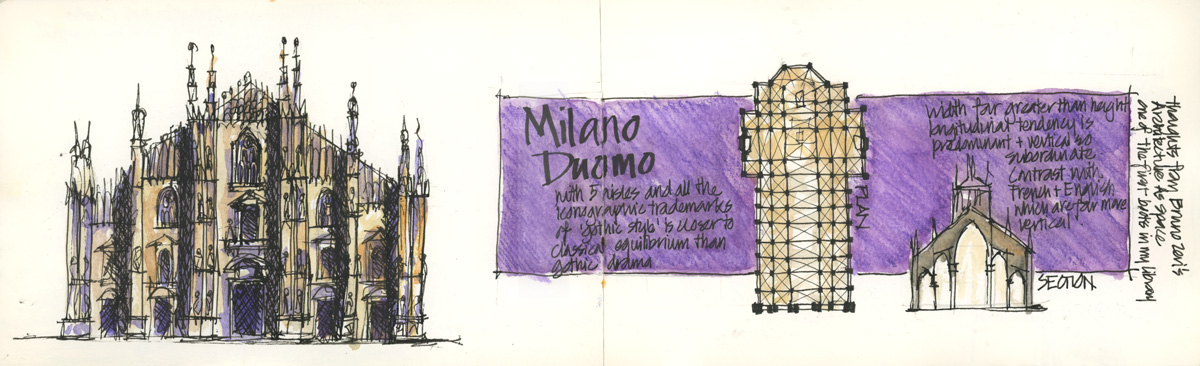 Milano
Duomo
with 5 aisles and all the
iconographic trademarks
of 'gothic style' is closer to
classical equilibrium than
gothic drama
PLAN
width far greater than height
longitudinal tendency is
predominant + vertical so
subordinate
Contrast with
French + English
which are far more
vertical
SECTION
thoughts from Bruno Zevi's
Architecture As Space
one of the first books in my library